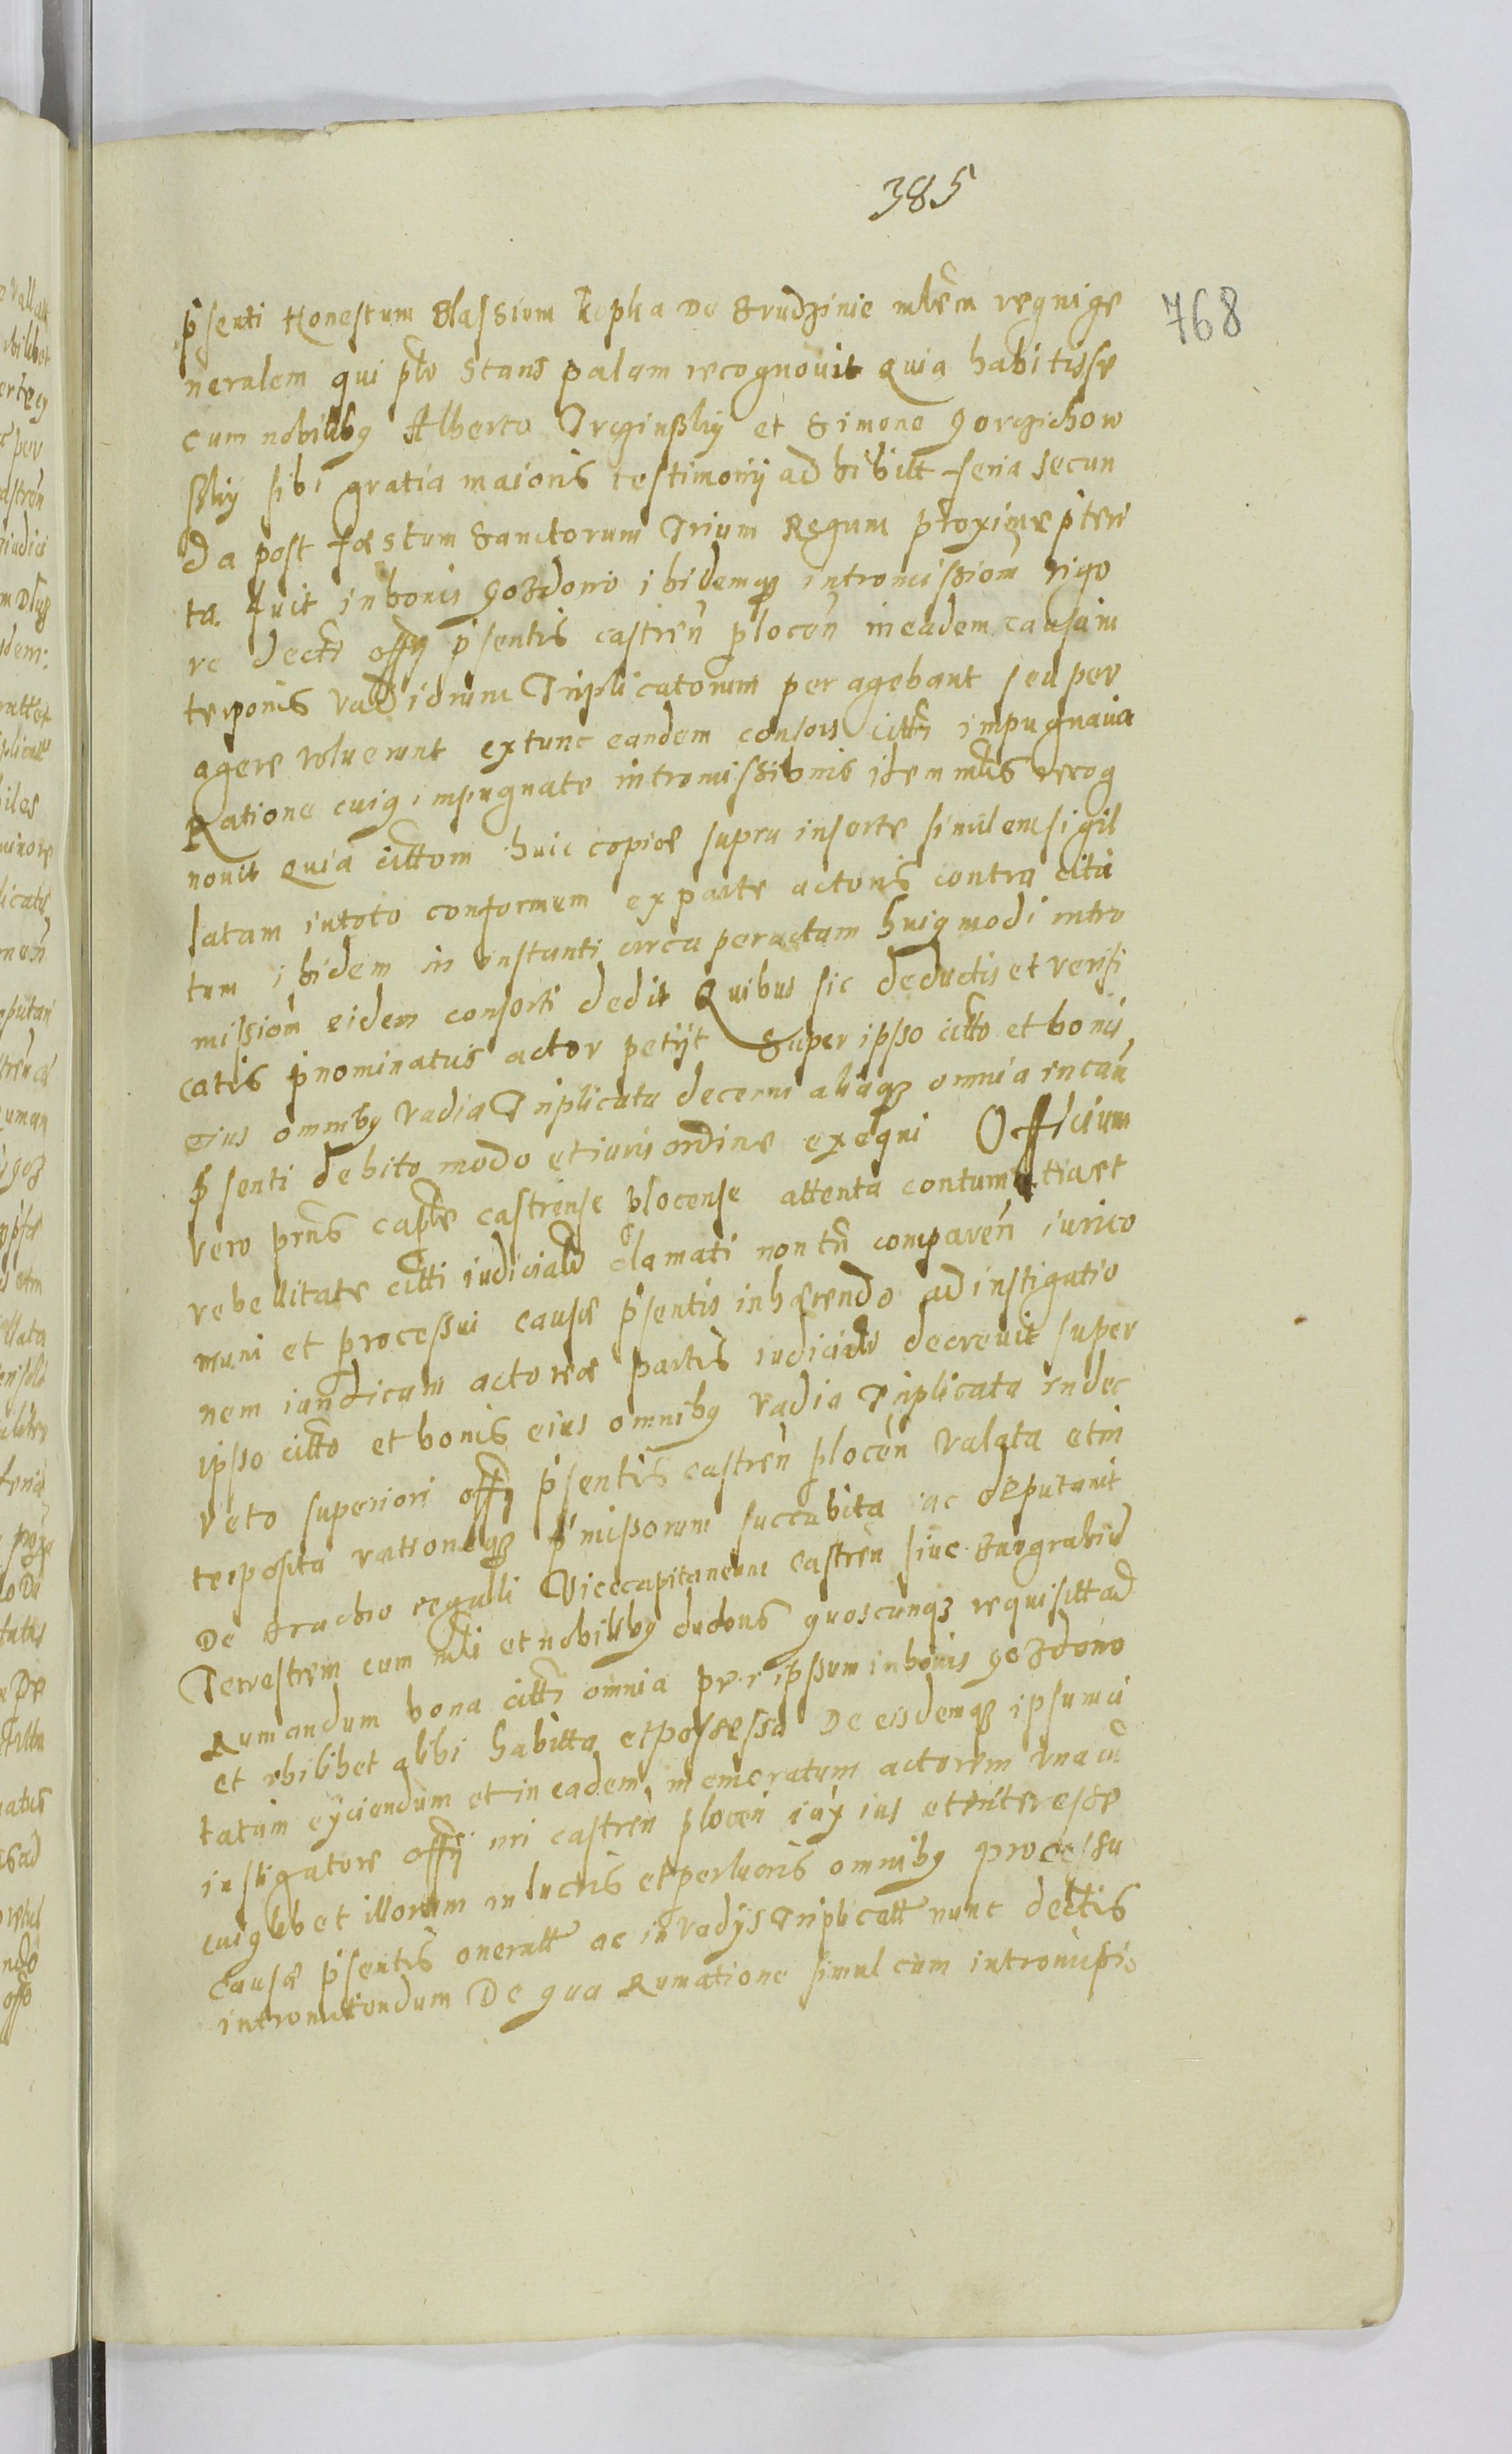 385
768
psenti Honestum Blassium Kepka de Srudzinie mlem regni ge
neralem qui plr stans palam recognouit Quia habitisse
cum nobilibq Alberto Trczinßky et Simone Gorczichow
ßky sibi gratia maioris testimonij adhibitt feria secun
da post foestum Sanctorum Trium Regum proxime pteri
ta fuit in bonis Gozdowo ibidemqz intromissiom vigo
re decti offy psentis castren plocen in eadem causa in
terponis vadiorum Triplicatorum peragebant seu per
agere voluerunt extunc eandem consors citti impugnauit
Ratione cuiq impugnate intromissionis item mlis recog
nouit quia cittom huic copiæ supra inserte similem sigil
latam in toto conformem ex parte actoris contra cita
tum ibidem in instanti circa peractam huiqmodi intro
missiom eidem consorti dedit Quibus sic deductis et verifi
catis pnominatus actor petijt Super ipso citto et bonis
eius omnibq vadia Triplicata decerni aliaqz omnia in cau
psenti debito modo et iuris ordine exequi Officium
vero prns caple castrense plocense attenta contumatia et
rebellitate citti iudicialr clamati non tn comparen iurico
muni et processui causæ psentis inhærendo ad instigatio
nem iuridicam actoreæ partis iudicialr decreuit super
ipso citto et bonis eius omnibq vadia Triplicata in dec
reto superiori offy psentis castren plocen valata et in
terposita rationeqz pmissorum succubita ac deputauit
de brachio regali Vicecapitaneum castren siue Burgrabiu
Terrestrem cum mli et nobilibq duobus quoscunqz requisitt ad
Rumandum bona citti omnia per ipsum in bonis Gozdowo
et vbilibet alibi habitta et possessa De eisdemqz ipsum ci
tatum eyciendum et in eadem memoratum actorem vna cu
instigatore offy nri castren plocen iux ius et interesse
cuiqlibet illorum in lucris et perlucris omnibq processu
causæ psentis oneratt ac in vadijs Triplicatt nunc dectis
intromittendum De qua Rumatione simul cum intromissio